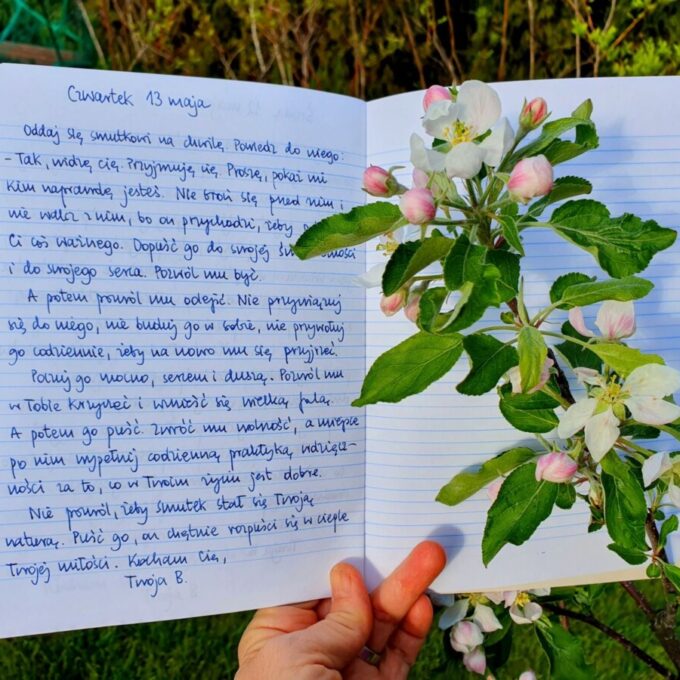 Czwartek 13 maja
Oddaj się smutkowi na chwilę. Powiedz do niego:
- Tak, widzę cię. Przyjmuję cię. Proszę, pokaż mi
kim naprawdę jesteś. Nie broń się przed nim i
nie walcz z nim, bo on przychodzi, żeby
Ci coś ważnego. Dopuść go do swojej
i do swojego serca. Pozwól mu być.
A potem pozwól mu odejść. Nie przywiązuj
się do niego, nie buduj go w sobie, nie przywołuj
go codziennie, żeby na nowo mu się przyjrzeć.
Poczuj go mocno, sercem i duszą. Pozwól mu
w Tobie krzyczeć i wznieść się wielką falą.
A potem go puść. Zwróć mu wolność, a miejsce
po nim wypełnij codzienną praktyką wdzięcz-
ności za to, co w Twoim życiu jest dobre.
Nie pozwól, żeby smutek stał się Twoją
naturą. Puść go, on chętnie rozpuści się w cieple
Twojej miłości. Kocham Cię,
Twoja B.